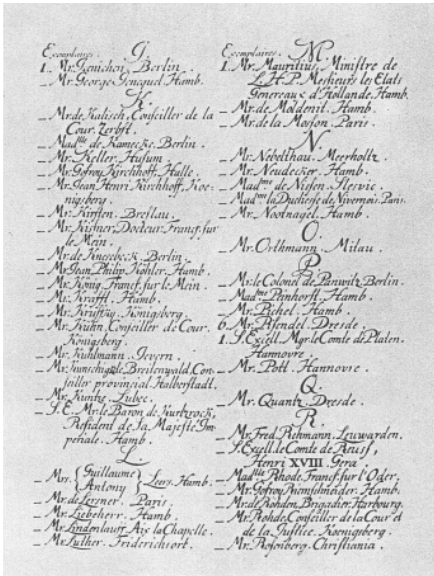 Exemplaires:
G.
1. Mr. Jenichen, Berlin.
_ Mr. George Jencquel. Hamb.
K.
_ Mr. de Kalisch, Conseiller de la
Cour. Zerbst.
_ Mad^lle de Kamecke. Berlin.
_ Mr. Keller, Husum
_ Mr. Gofroy Kirchhoff, Halle.
_ Mr. Jean Henri Kirchhoff, Koe-
nigsberg.
_ Mr. Kirsten, Breslau.
_ Mr. Kisner, Docteur, Francf. sur
le Mein.
_ Mr. de Knesebeck, Berlin.
_ Mr. Jean Philip Köhler. Hamb.
_ Mr. König. Francf. sur le Mein.
_ Mr. Krafft. Hamb.
_ Mr. Königsberg.
_ Mr. Kühn, Conseiller de Cour.
Königsberg.
_ Mr. Kuhlmann. Jevern.
_ Mr. de Breitenwald, Con-
seiller provincial. Halberstadt.
_ Mr. Kuntze, Lubec.
_ S. E. Mr. le Baron de Kurtzrock,
Resident de la Majesté Im-
periale. Hamb.
L.
_ Mrs. { Guillaume
Antony } Leers. Hamb.
_ Mr. de Lersner. Paris.
_ Mr. Liebeherr. Hamb.
_ Mr. Lindenlauff. Aix la Chapelle.
_ Mr. Luther. Friderichsort.
Exemplaires.
M.
1. Mr. Mauritius, Ministre de
L. H. P. Messieurs les Etats
Genereaux d'Hollande. Hamb.
_ Mr. de Moldenit. Hamb.
_ Mr. de la Moson. Paris.
N.
_ Mr. Nebelthau. Meerholtz.
_ Mr. Neudecker. Hamb.
_ Mad^me de Niesen. Slesvic.
_ Mad^me la Duchesse de Nivernois. Paris.
_ Mr. Nootnagel. Hamb.
O.
_ Mr. Orthmann. Milau.
P.
_ Mr. le Colonel de Panwitz. Berlin.
_ Mad^me Peinhorst. Hamb.
_ Mr. Pichel. Hamb.
6. Mr. Pisendel. Dresde.
1. S. Excell. Mgr. le Comte de Platen.
Hannovre.
_ Mr. Pott. Hannovre.
Q.
_ Mr. Quantz. Dresde.
R.
_ Mr. Fred. Rehmann. Leuwarden.
_ S. Excell. de Comte de Reuss,
Henri XVIII. Gera.
_ Mad^lle Rhode. Francf. sur l'Oder.
_ Mr. Gofroy Riemschneider. Hamb.
_ Mr. de Rohden. Brigadier. Harbourg.
_ Mr. Rohde, Conseiller de la Cour et
de la Justice. Koenigsberg.
_ Mr. Rosenberg. Christiania.